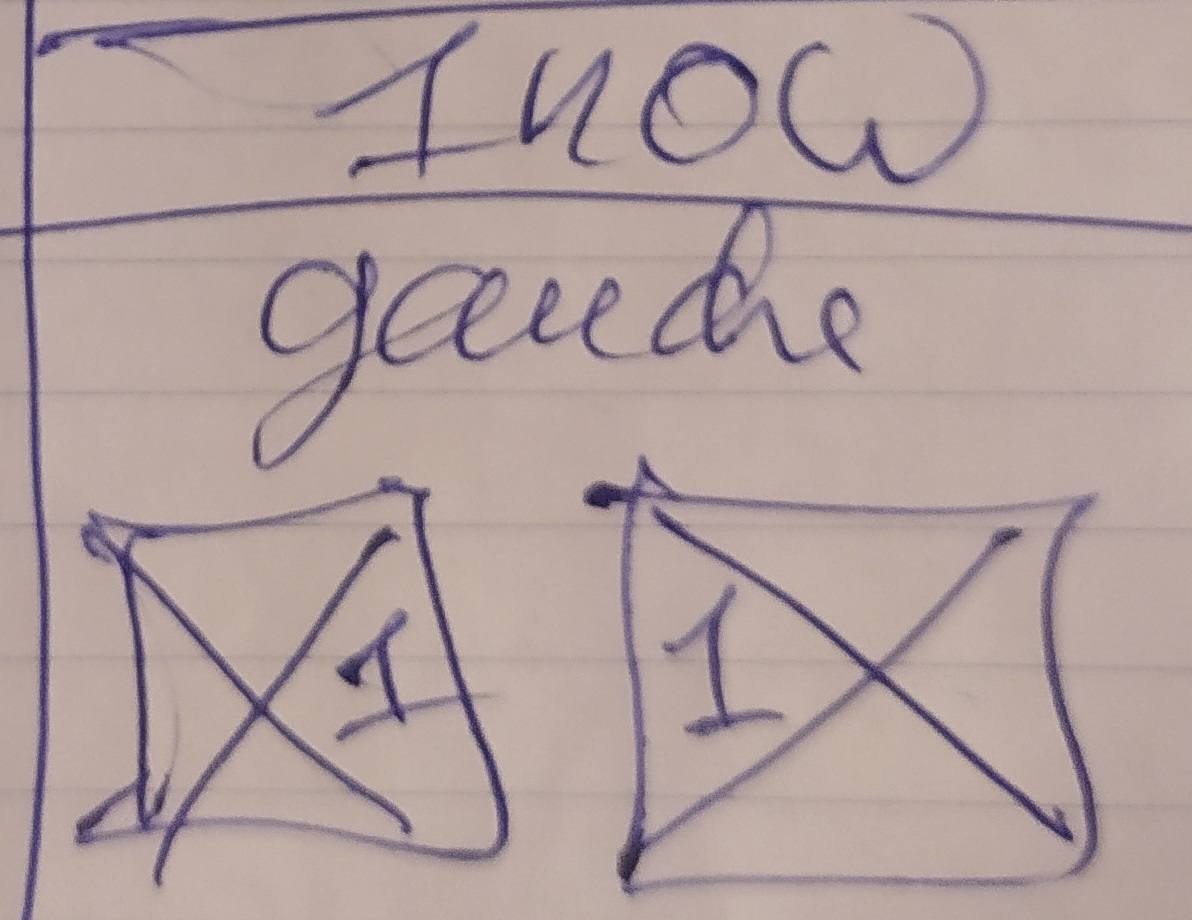 1 now
gauche
1 1